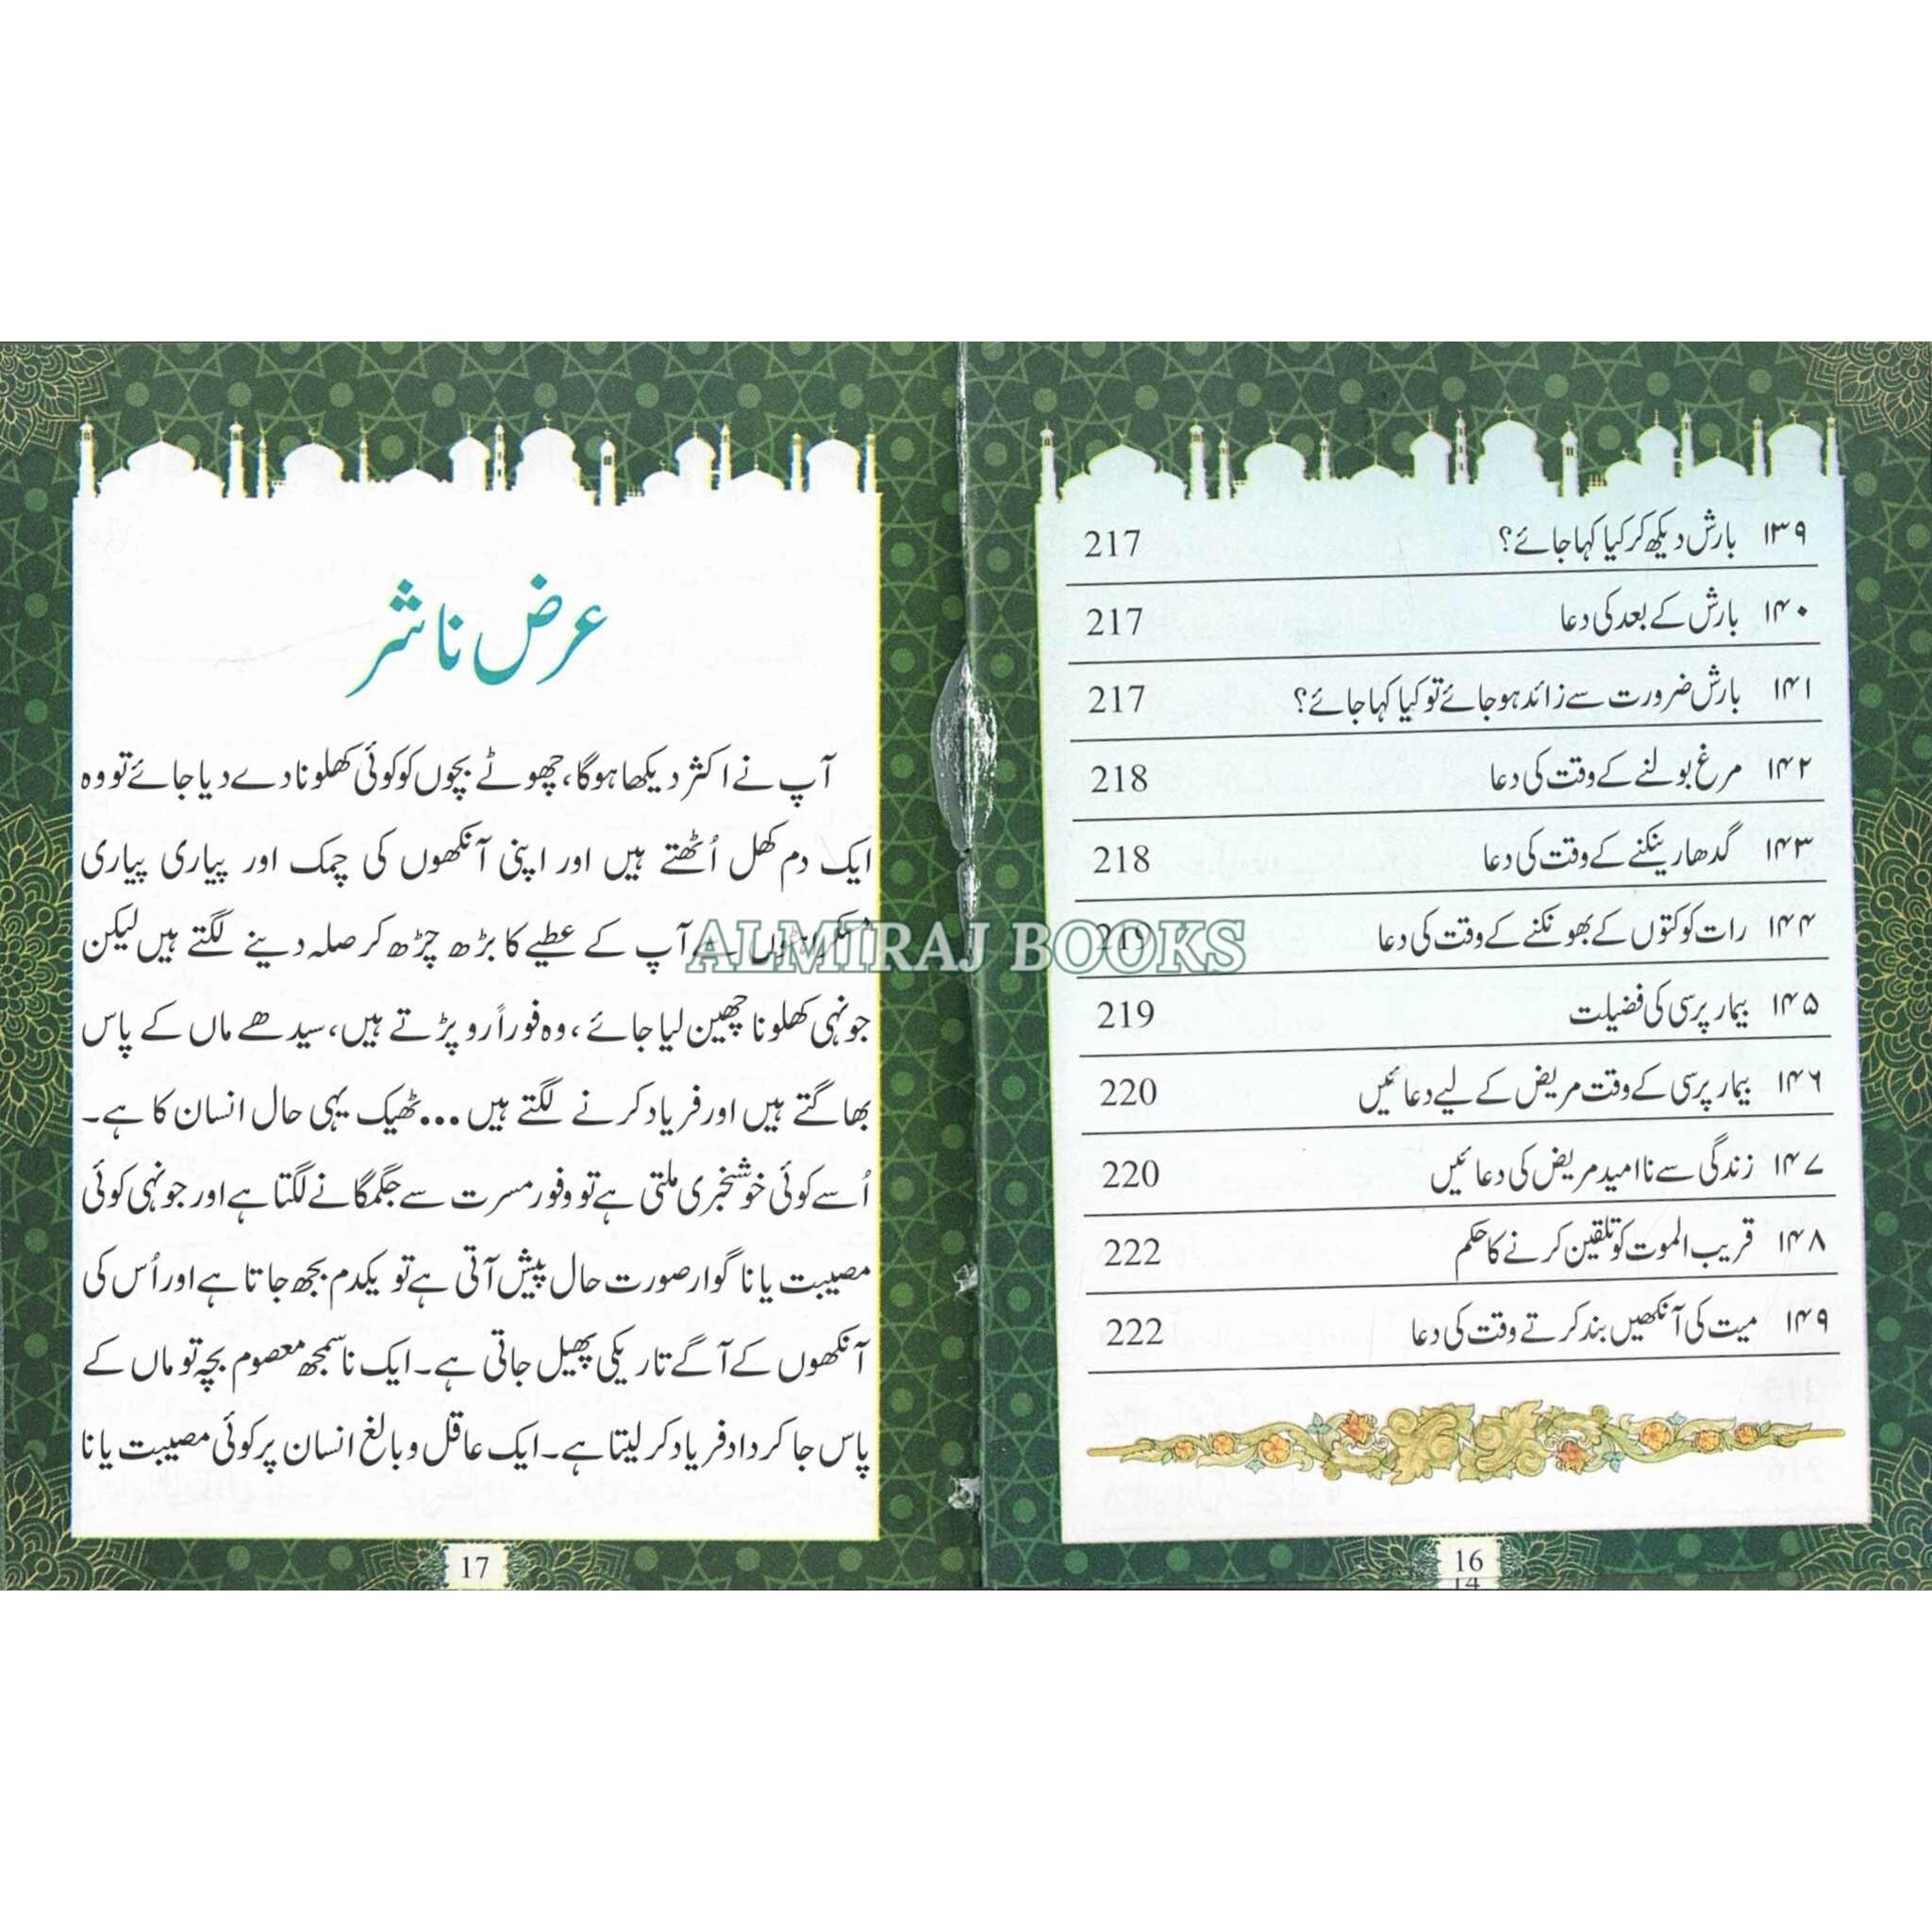 ۱۳۹ بارش دیکھ کر کیا کہا جائے؟ 217
۱۴۰ بارش کے بعد کی دعا 217
۱۴۱ بارش ضرورت سے زائد ہو جائے تو کیا کہا جائے؟ 217
۱۴۲ مرغ بولنے کے وقت کی دعا 218
۱۴۳ گدھا رینکنے کے وقت کی دعا 218
۱۴۴ رات کو کتوں کے بھونکنے کے وقت کی دعا 219
۱۴۵ بیمار پرسی کی فضیلت 219
۱۴۶ بیمار پرسی کے وقت مریض کے لیے دعائیں 220
۱۴۷ زندگی سے ناامید مریض کی دعائیں 220
۱۴۸ قریب الموت کو تلقین کرنے کا حکم 222
۱۴۹ میت کی آنکھیں بند کرتے وقت کی دعا 222
16
14
عرض ناشر
آپ نے اکثر دیکھا ہوگا، چھوٹے بچوں کو کوئی کھلونا دے دیا جائے تو وہ
ایک دم کھل اُٹھتے ہیں اور اپنی آنکھوں کی چمک اور پیاری پیاری
مسکراہٹوں سے آپ کے عطیے کا بڑھ چڑھ کر صلہ دینے لگتے ہیں لیکن
جونہی کھلونا چھین لیا جائے، وہ فوراً رو پڑتے ہیں، سیدھے ماں کے پاس
بھاگتے ہیں اور فریاد کرنے لگتے ہیں ... ٹھیک یہی حال انسان کا ہے۔
اُسے کوئی خوشخبری ملتی ہے تو وفور مسرت سے جگمگانے لگتا ہے اور جونہی کوئی
مصیبت یا ناگوار صورت حال پیش آتی ہے تو یکدم بجھ جاتا ہے اور اُس کی
آنکھوں کے آگے تاریکی پھیل جاتی ہے۔ ایک ناسمجھ معصوم بچہ تو ماں کے
پاس جا کر داد فریاد کر لیتا ہے۔ ایک عاقل و بالغ انسان پر کوئی مصیبت یا نا
17
ALMIRAJ BOOKS